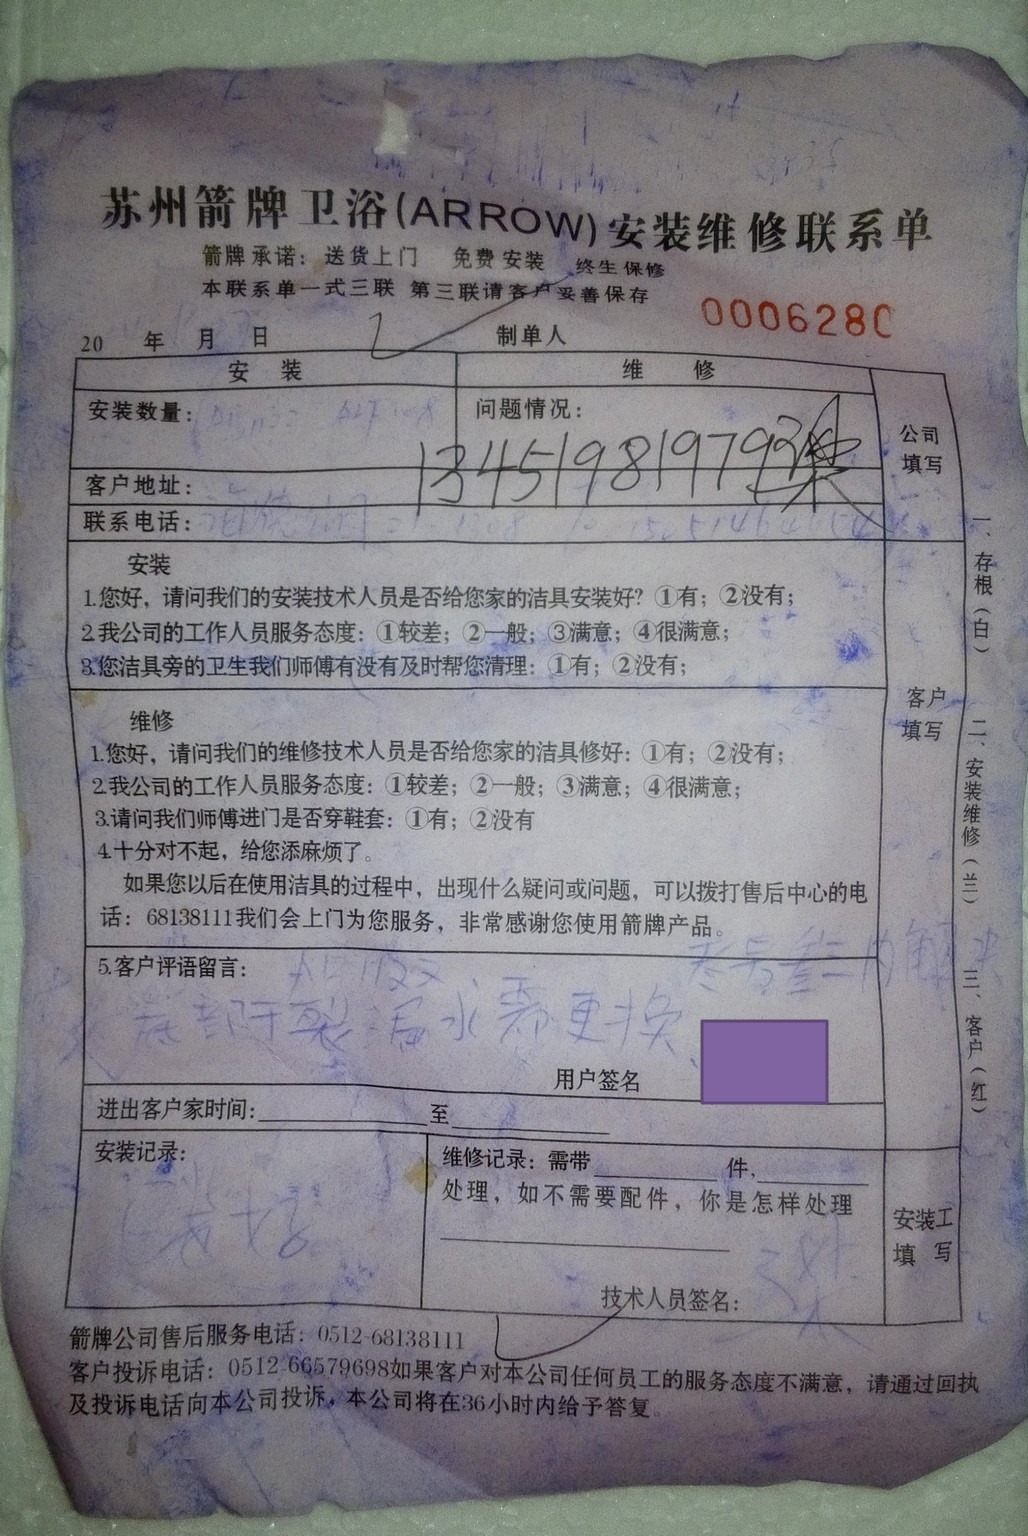 苏州箭牌卫浴(ARROW)安装维修联系单
箭牌承诺：送货上门 免费安装 终生保修
本联系单一式三联 第三联请客户妥善保存
0006280
20 年 月 日 制单人
安 装 维 修
安装数量： 问题情况：
公司填写
13451981979
客户地址：
联系电话：
安装
1.您好，请问我们的安装技术人员是否给您家的洁具安装好？①有；②没有；
2.我公司的工作人员服务态度：①较差；②一般；③满意；④很满意；
3.您洁具旁的卫生我们师傅有没有及时帮您清理：①有；②没有；
客户填写
维修
1.您好，请问我们的维修技术人员是否给您家的洁具修好：①有；②没有；
2.我公司的工作人员服务态度：①较差；②一般；③满意；④很满意；
3.请问我们师傅进门是否穿鞋套：①有；②没有
4.十分对不起，给您添麻烦了。
如果您以后在使用洁具的过程中，出现什么疑问或问题，可以拨打售后中心的电
话：68138111我们会上门为您服务，非常感谢您使用箭牌产品。
5.客户评语留言：
底部开裂漏水需更换
用户签名
进出客户家时间： 至
安装记录：
维修记录：需带 件，
处理，如不需要配件，你是怎样处理
技术人员签名：
安装工填 写
一、存根（白） 二、安装维修（兰） 三、客户（红）
箭牌公司售后服务电话：0512-68138111
客户投诉电话：0512-66579698如果客户对本公司任何员工的服务态度不满意，请通过回执
及投诉电话向本公司投诉，本公司将在36小时内给予答复。